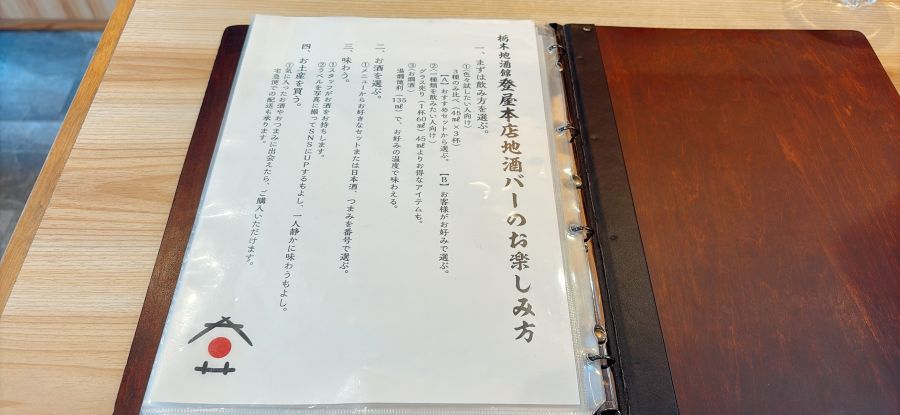 栃木地酒館登屋本店地酒バーのお楽しみ方
一、まずは飲み方を選ぶ。
①色々試したい人向け)
3種のみ比べ(45㎖×3杯)
【A】おすすめセットから選ぶ。【B】お客様がお好みで選ぶ。
②一種類を飲みたい人向け)
グラス売り(1杯60㎖)45㎖よりお得なアイテムも。
③(お燗酒)
湯燗徳利(135㎖)で、お好みの温度で味わえる。
二、お酒を選ぶ。
①メニューからお好きなセットまたは日本酒、つまみを番号で選ぶ。
三、味わう。
①スタッフがお酒をお持ちします。
②ラベルを写真に撮ってSNSにUPするもよし、一人静かに味わうもよし。
四、お土産を買う。
①気に入ったお酒やおつまみに出会えたら、ご購入いただけます。
宅急便での配送も承ります。